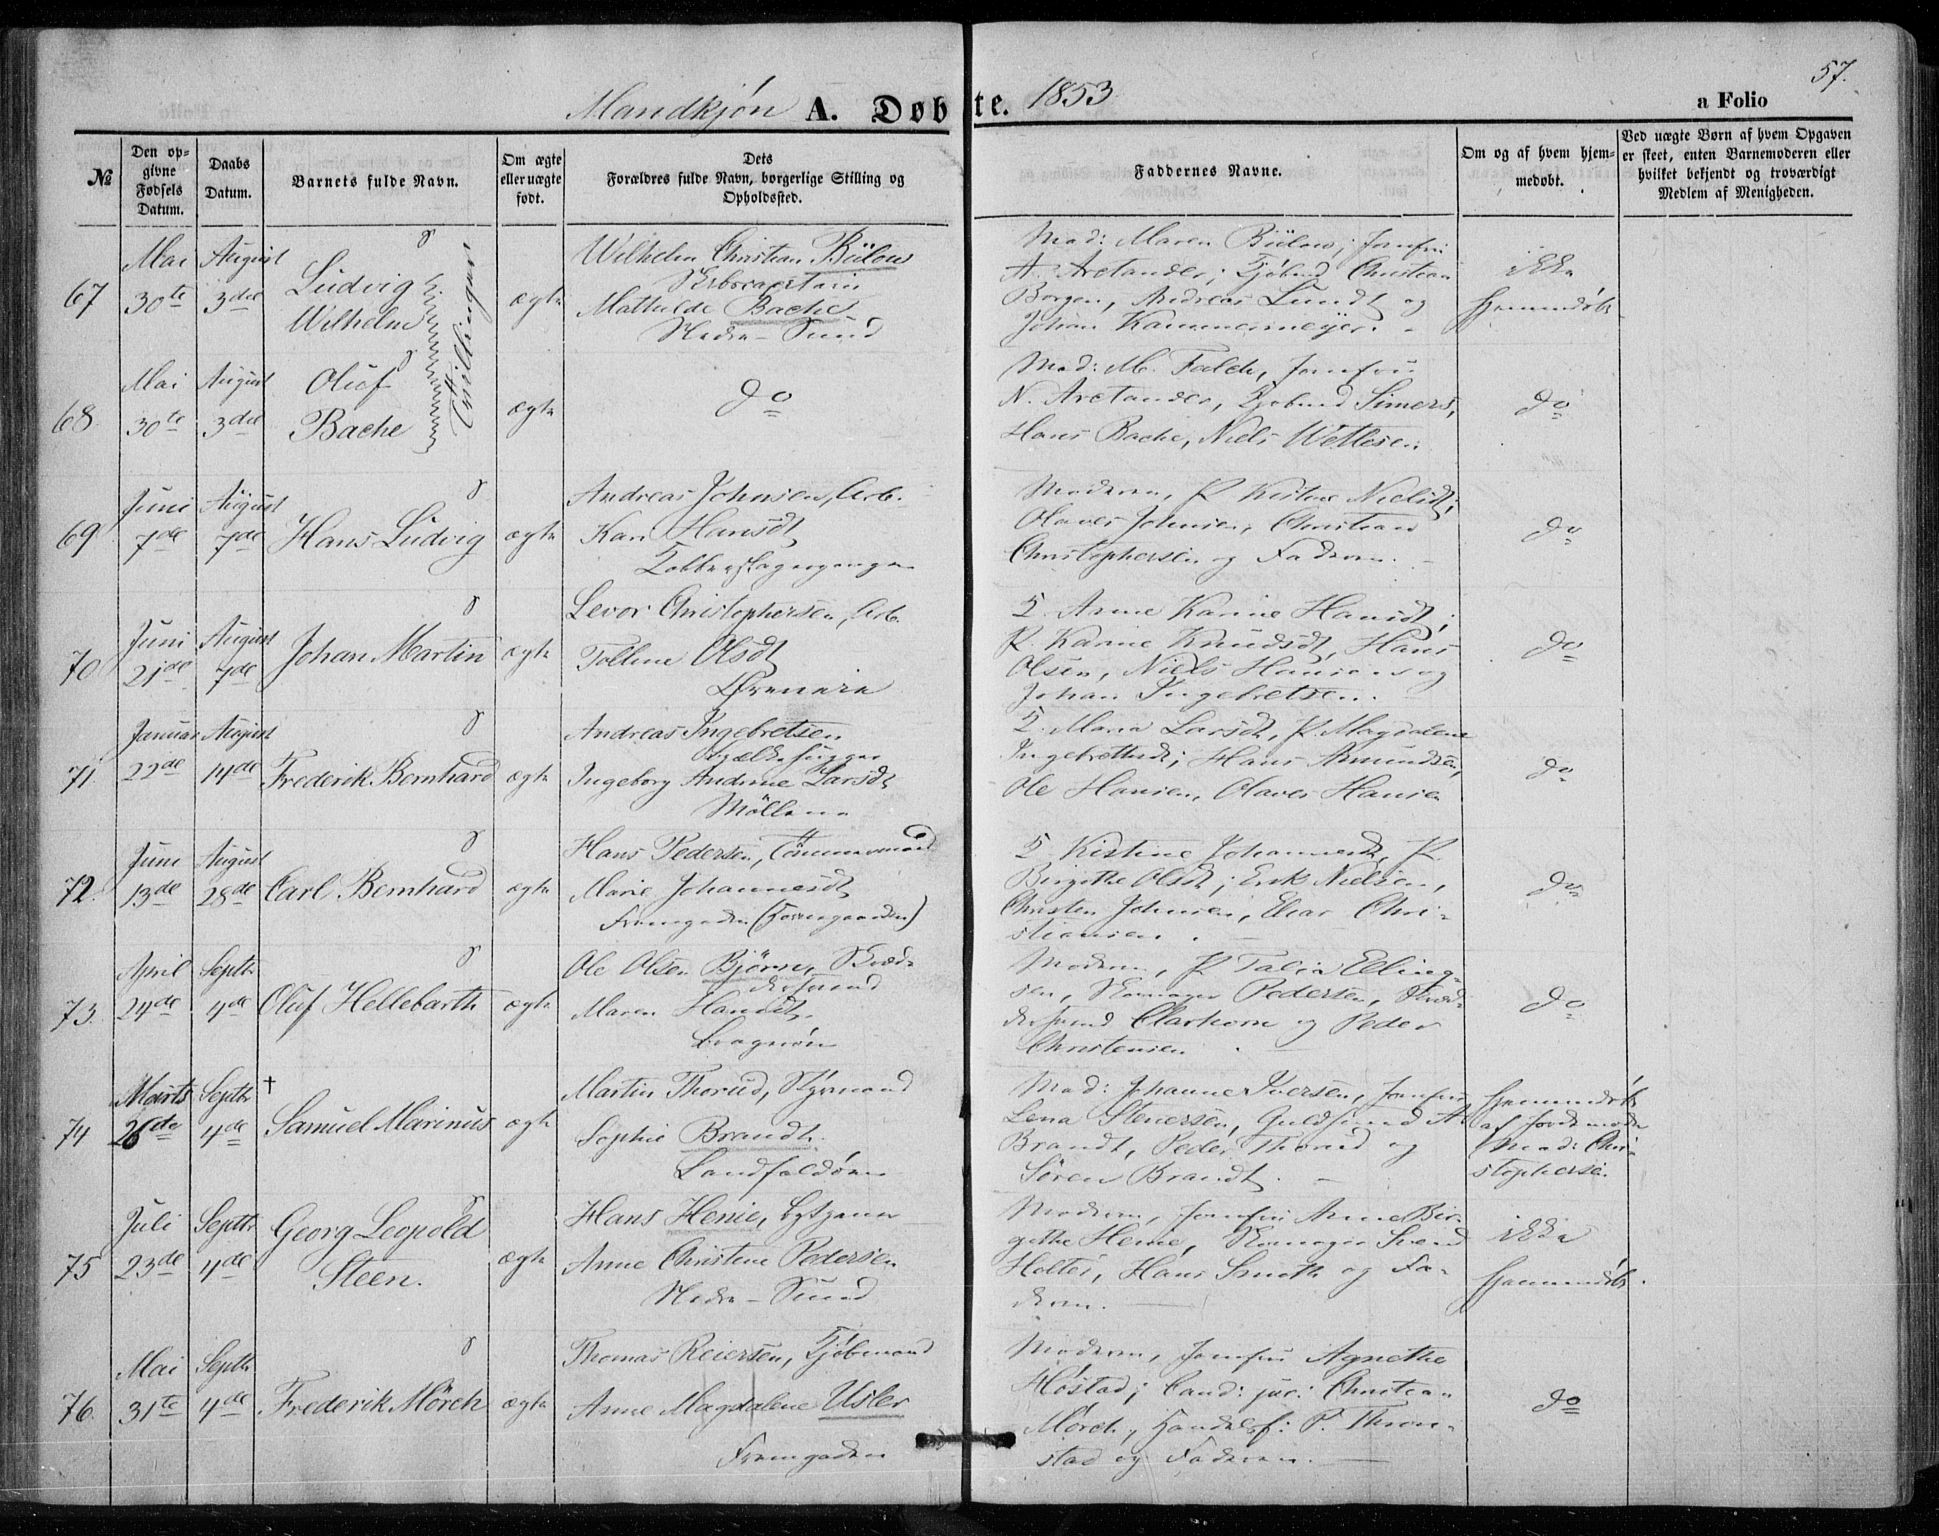 57.
Mandkjøn A. Døbte. 1853
a Folio
№
Den op-
givne
Fødsels
Datum.
Daabs
Datum.
Barnets fulde Navn.
Om ægte
eller uægte
født.
Dets
Forældres fulde Navn, borgerlige Stilling og
Opholdssted.
Faddernes Navne.
Om og af hvem hjem-
medøbt.
Ved uægte Børn af hvem Opgaven
er skeet, enten Barnemoderen eller
hvilket bekjendt og troværdigt
Medlem af Menigheden.
67
Mai
30te
August
3die
Ludvig
Wilhelm
Tvillinger
ægte
Wilhelm Christian Bülow
Mathilde Bache
Nedre-Sund
Mad: Maren Bülow; Jomfru
A. Arctander; Kjøbmd Christian
Borgen, Andreas Lundt og
Johan Kammermeyer.
ikke
hjemmedøbt
68
Mai
30te
August
3die
Oluf
Bache
ægte
do
Mad: M. Falch, Jomfru
N. Arctander, Kjøbmd Simers,
Hans Bache, Niels Wettesen
do
69
Juni
7de
August
7de
Hans Ludvig
ægte
Andreas Johnsen, Arb.
Kari Hansdt
Moderen, P. Kistine Nielsdt;
Olaves Johnsen, Christian
Christophersen og Faderen.
do
70
Juni
21de
August
7de
Johan Martin
ægte
Levor Christophersen, Arb.
Tolline Olsdt
Øreneie
K. Anne Karine Hansdt;
P. Karine Knudsdt, Hans
Olsen, Niels Hansen og
Johan Ingebretsen.
do
71
Januar
22de
August
14de
Frederik Bernhard
ægte
Andreas Ingebretsen
Bjælkehugger
Ingeborg Andrine Larsdt
Møllene
K. Maria Larsdt, P. Magdalene
Ingebretsdt; Hans Amundsen,
Ole Hansen, Olaves Hansen
do
72.
Juni
13de
August
28de
Carl Bernhard
ægte
Hans Pedersen, Tømmermand
Marie Johannesdt
K. Kistine Johannesdt, P.
Birgithe Olsdt; Erik Nielsen,
Christen Johnsen, Elias Chri-
stiansen.
do
73.
April
24de
Septbr
4de
Oluf Hellebarth
ægte
Ole Olsen Bjørn, Skræd-
dersvend
Maren Hansdt.
Bragnøen
Moderen, P. Talia Elling-
sen, Skomager Pedersen, Skræd-
dersvend Clarhom og Peder
Christensen.
do
74
Marts
26de
Septbr
4de
†
Samuel Marinus
ægte
Martin Thorud, Styrmand
Sophie Brandt.
Landfaldøen
Mad: Johanne Iversen, Jomfru
Lena Stenersen, Guldsmed A.
Brandt, Peder Thorud og
Søren Brandt.
hjemmedøbt
af Jordemoder
Mad: Chri-
stophersen
75
Juli
23de
Septbr
4de
Georg Leopold
Steen.
ægte
Hans Henie, Bytjener
Anne Christine Pedersen
Nedre-Sund
Moderen, Jomfru Anne Bir-
githe Henie, Skomager Svend
Holter, Hans Smith og Fa-
deren.
ikke
hjemmedøbt.
76.
Mai
31te
Septbr
4de
Frederik Mörch
ægte
Thomas Reiersen, Kjøbmand
Anne Magdalene Usler
Fremgaden
Moderen, Jomfru Agnethe
Høstad; Cand: jur: Christian
Mörch, Handelsf: P. Thron-
stad og Faderen.
do